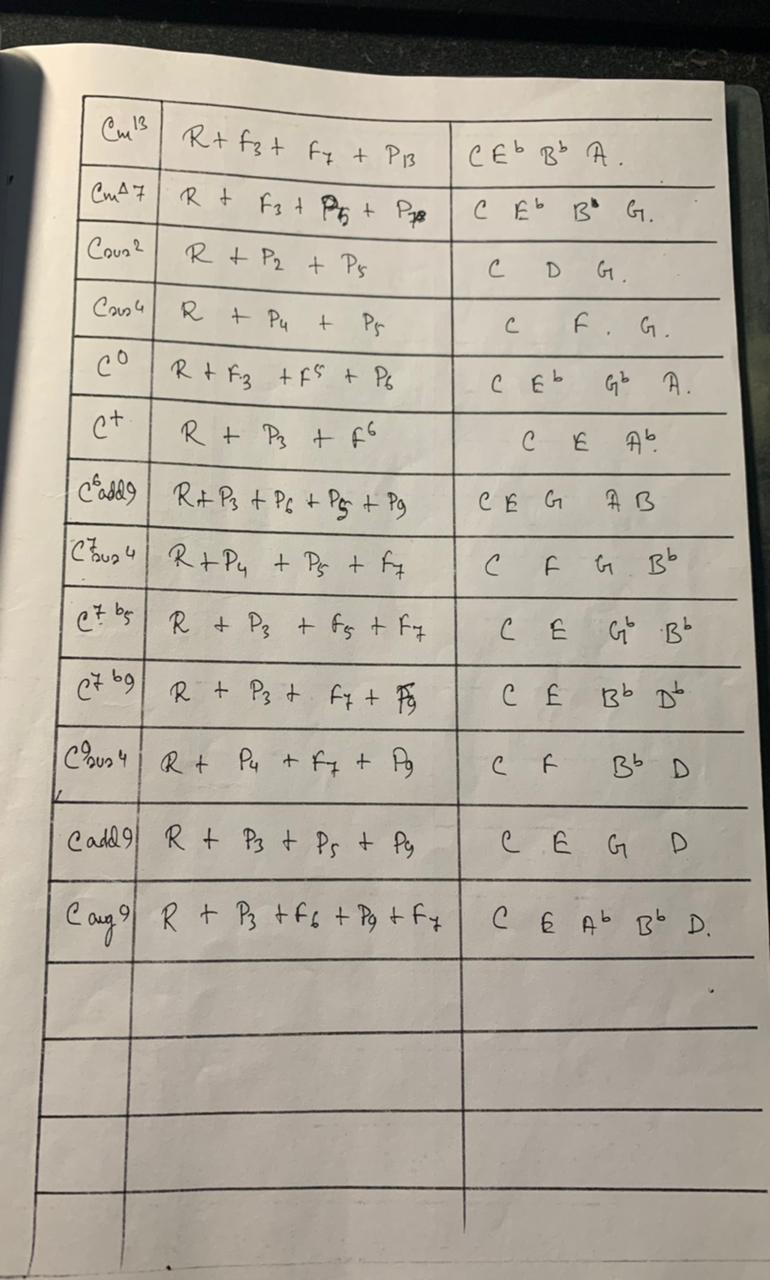 Cm13 R + F3 + F7 + P13 C Eb Bb A.
CmΔ7 R + F3 + P5 + P7 C Eb B G.
Csus2 R + P2 + P5 C D G.
Csus4 R + P4 + P5 C F. G.
C0 R + F3 + F5 + P6 C Eb Gb A.
C+ R + P3 + F6 C E Ab.
C6add9 R + P3 + P6 + P5 + P9 C E G A B
C7sus4 R + P4 + P5 + F7 C F G Bb
C7 b5 R + P3 + F5 + F7 C E Gb Bb
C7 b9 R + P3 + F7 + F9 C E Bb Db
C9sus4 R + P4 + F7 + P9 C F Bb D
C add9 R + P3 + P5 + P9 C E G D
C aug9 R + P3 + F6 + P9 + F7 C E Ab Bb D.